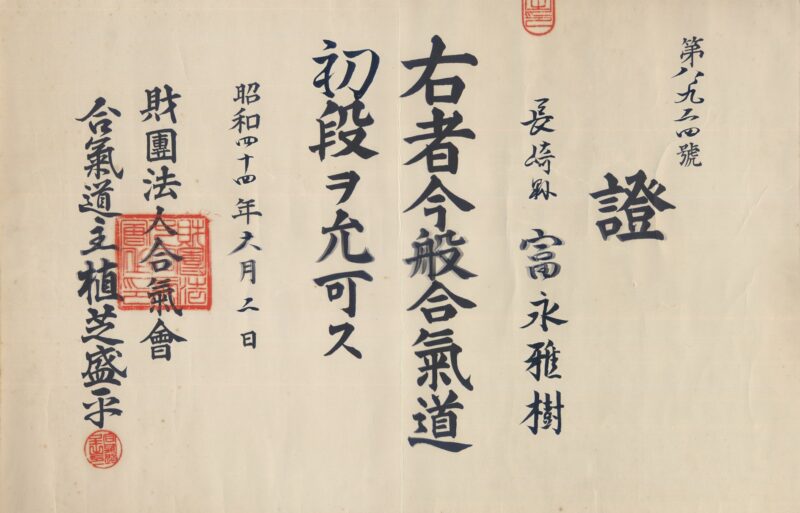 第八九二四號
證
長崎縣 富永雅樹
右者今般合氣道
初段ヲ允可ス
昭和四十四年六月二日
財團法人合氣會
合氣道主植芝盛平